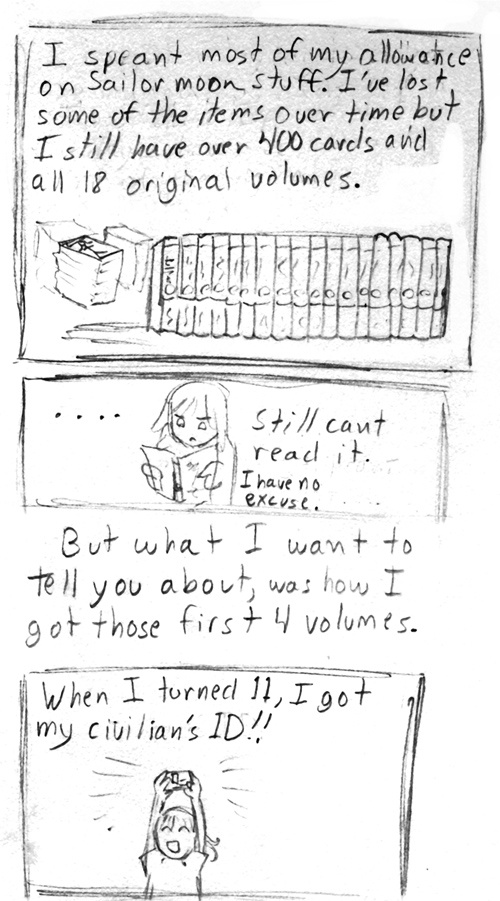 I speant most of my allowance
on Sailor moon stuff. I've lost
some of the items over time but
I still have over 400 cards and
all 18 original volumes.
....
Still cant
read it.
I have no
excuse.
But what I want to
tell you about, was how I
got those first 4 volumes.
When I turned 11, I got
my civilian's ID!!